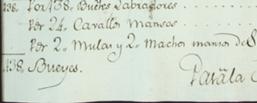 138. Por 138. Bueyes Labradores
Per 24. Cavallos Mansos
Per 2. Mulas y 2. Machos mansos de S
138. Bueyes.
Paräla C